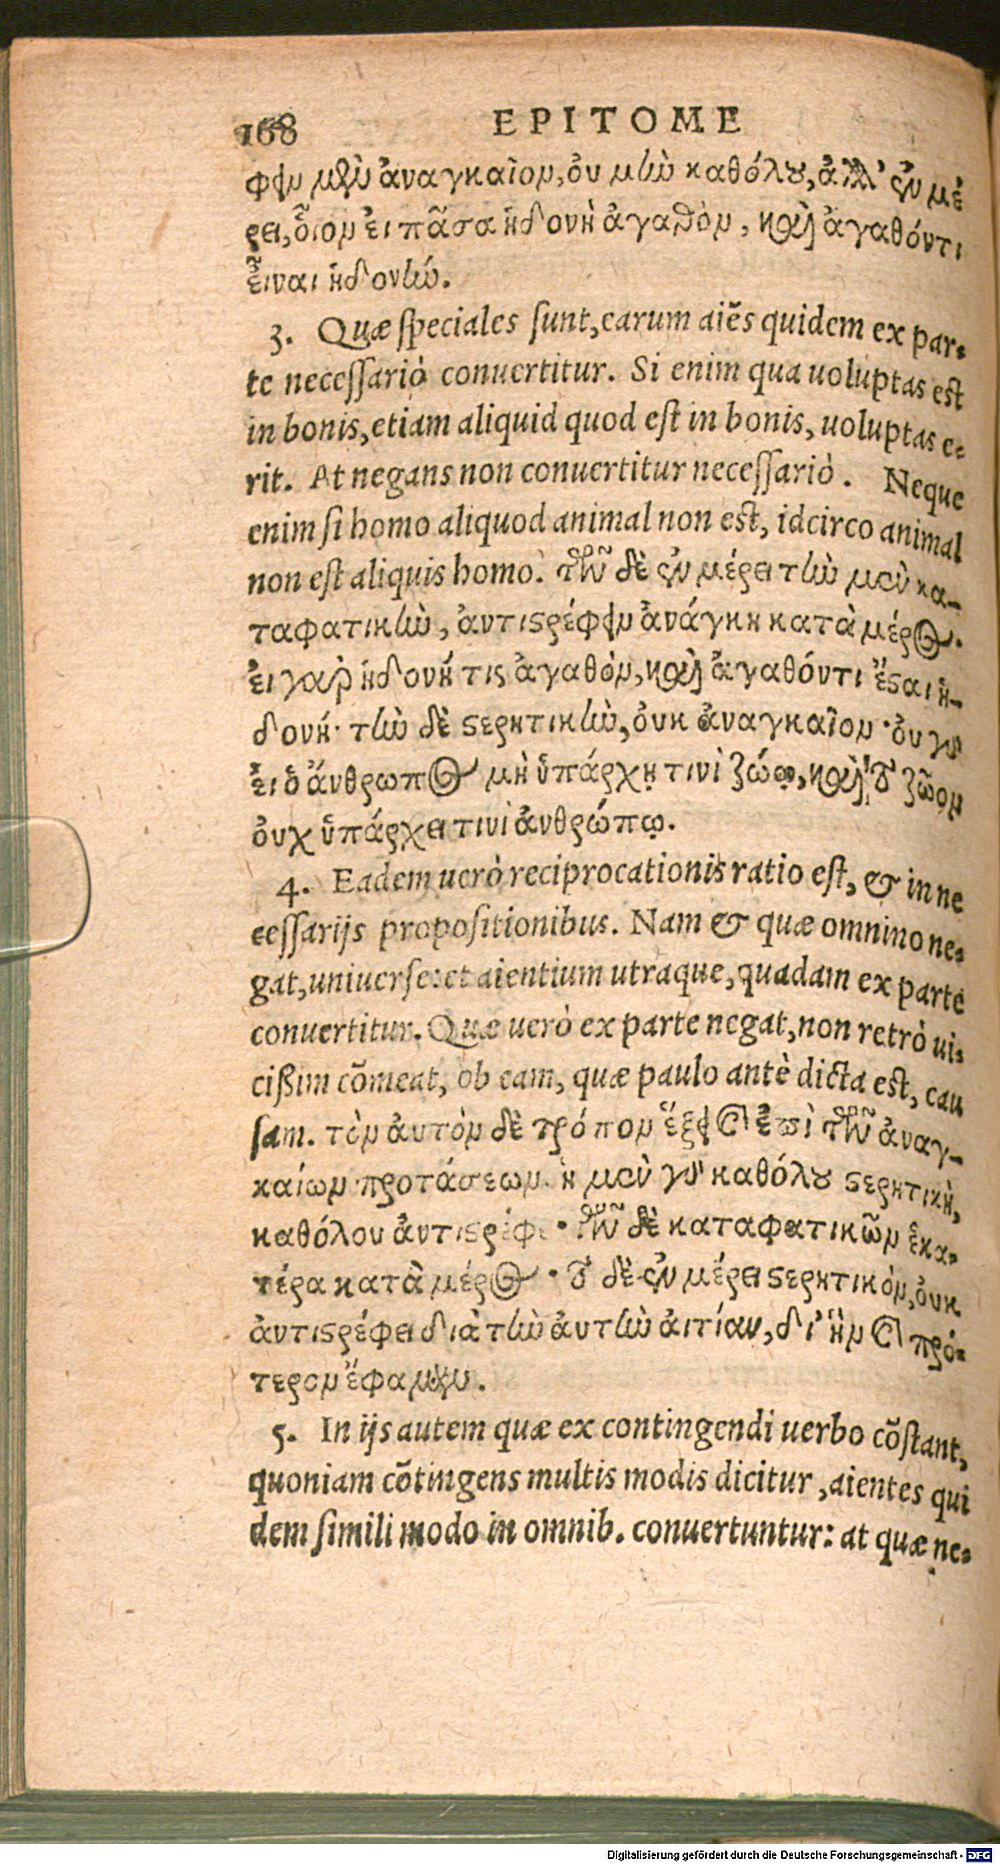 168 EPITOME
φειν μὲν ἀναγκαῖον, οὐ μὴν καθόλου, ἀλλ' ἐν μέ
ρει, οἷον εἰ πᾶσα ἡδονὴ ἀγαθὸν, καὶ ἀγαθόντι
εἶναι ἡδονήν.
3. Quæ speciales sunt, earum aiẽs quidem ex par-
te necessariò conuertitur. Si enim qua uoluptas est
in bonis, etiam aliquid quod est in bonis, uoluptas e-
rit. At negans non conuertitur necessariò. Neque
enim si homo aliquod animal non est, idcirco animal
non est aliquis homo. τῶν δὲ ἐν μέρει τὴν μὲν κα-
ταφατικὴν, ἀντιστρέφειν ἀνάγκη κατὰ μέρος.
εἰ γαρ ἡδονή τις ἀγαθὸν, καὶ ἀγαθόντι ἔσαι ἡ-
δονή· τὴν δὲ στερητικὴν, οὐκ ἀναγκαῖον· οὐ γὰρ
εἰ ὁ ἄνθρωπος μὴ ὑπάρχῃ τινὶ ζώῳ, καὶ τὸ ζῶον
οὐχ ὑπάρχει τινὶ ἀνθρώπῳ.
4. Eadem uerò reciprocationis ratio est, & in ne
cessarijs propositionibus. Nam & quæ omnino ne-
gat, uniuerse: et aientium utraque, quadam ex parte
conuertitur. Quæ uerò ex parte negat, non retrò ui-
cißim cõmeat, ob eam, quæ paulo antè dicta est, cau
sam. τὸν αὐτὸν δὲ τρόπον ἕξει καὶ ἐπὶ τῶν ἀναγ-
καίων προτάσεων. ἡ μὲν γὰρ καθόλου στερητικὴ,
καθόλου ἀντιστρέφει· τῶν δὲ καταφατικῶν ἑκα-
τέρα κατὰ μέρος· τὸ δὲ ἐν μέρει στερητικὸν, οὐκ
ἀντιστρέφει διὰ τὴν αὐτὴν αἰτίαν, δι' ἣν καὶ πρό-
τερον ἔφαμεν.
5. In ijs autem quæ ex contingendi uerbo cõstant,
quoniam cõtingens multis modis dicitur, aientes qui
dem simili modo in omnib. conuertuntur: at quæ ne-
Digitalisierung gefördert durch die Deutsche Forschungsgemeinschaft - DFG